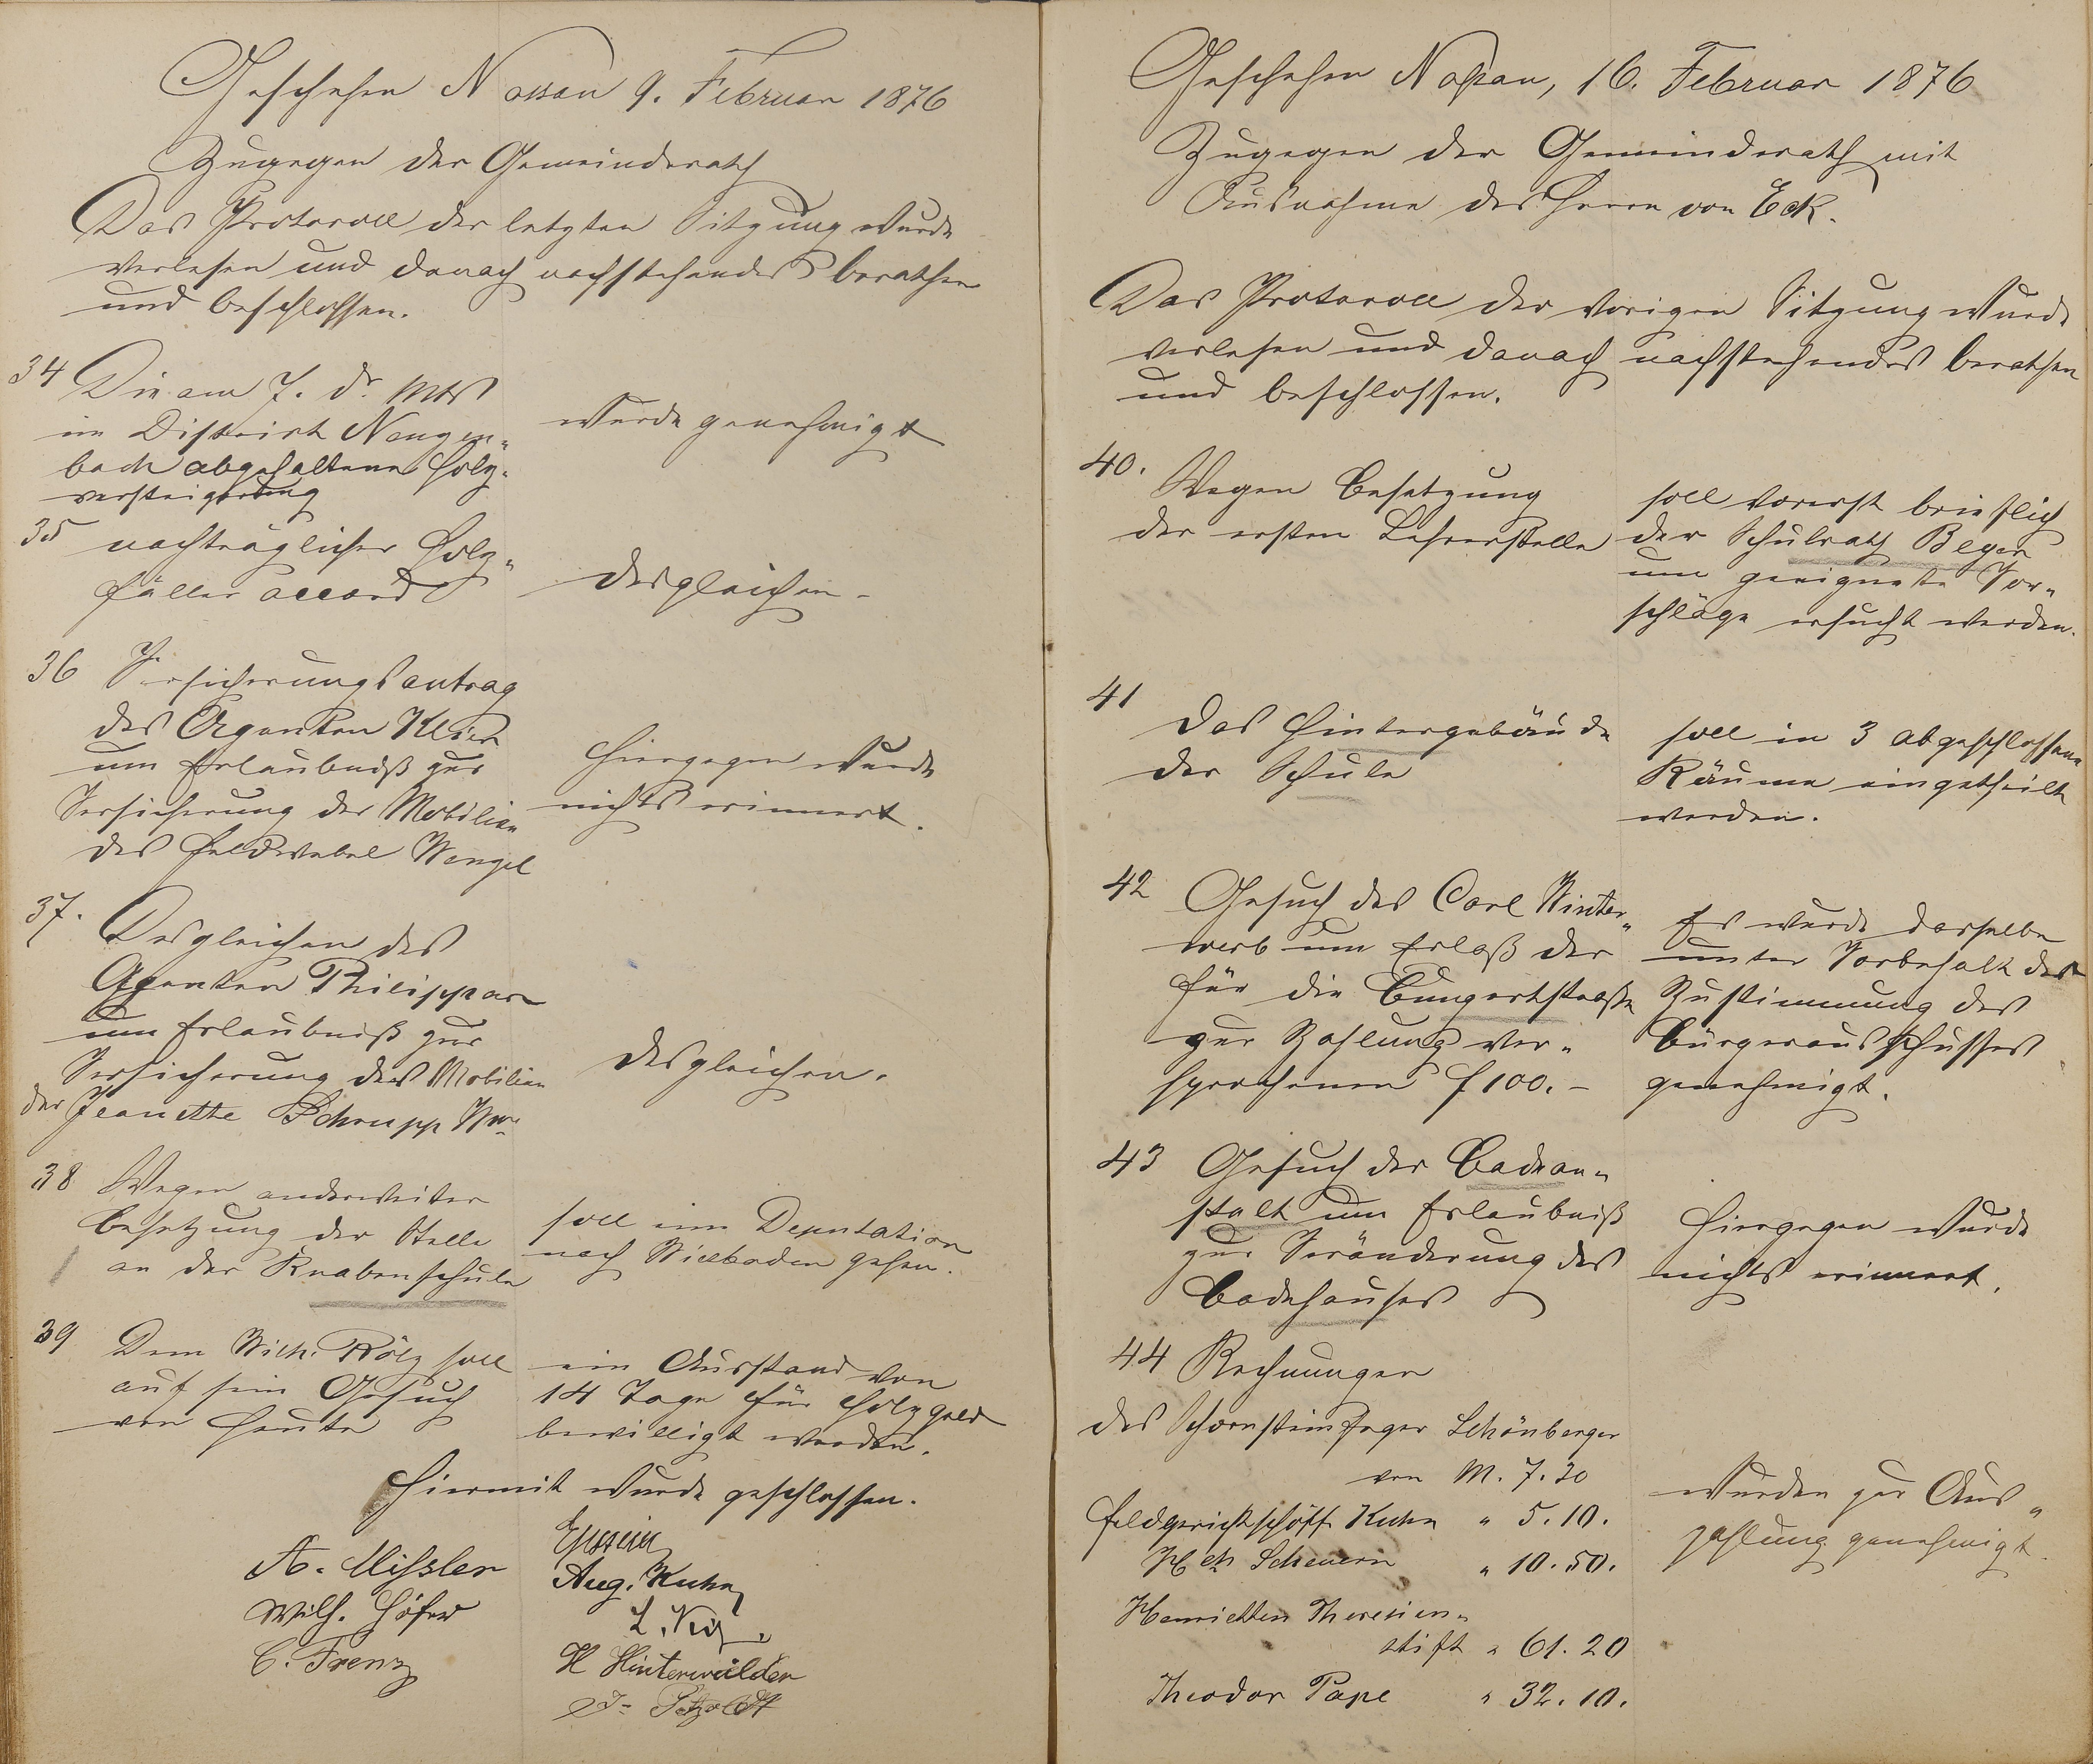 Geschehen Nassau 9. Februar 1876
Zugegen der Gemeinderath
Das Protocoll der letzten Sitzung wurde
verlesen und danach nachstehendes berathen
und beschlossen.
34 Die am 7. ds. Mts
im District Naugen„
bach abgehaltene Holz„
versteigerung
wurde genehmigt
35 nachträglicher Holz„
fäller accord
desgleichen -
36 Versicherungsantrag
des Agenten Klein
um Erlaubniß zur
Versicherung der Mobilien
des Feldwebel Wenzel
Hiergegen wurde
nichts erinnert.
37. Desgleichen des
Agenten Philippar
um Erlaubniß zur
Versicherung des Mobiliar
der Jeanette Schrupp Wwe
desgleichen.
38 Wegen anderweiter
Besetzung der Stelle
an der Knabenschule
soll eine Deputation
nach Wiesbaden gehen.
39 Dem Wilh. Rölz soll
auf sein Gesuch
von heute
ein Ausstand von
14 Tage für Holzgeld
bewilligt werden.
Hiermit wurde geschlossen.
A. Mißler
Wilh. Höfer
C. Trenz
Aug. Kuhn
H Hinterwälder
Petzoldt
Geschehen Naßau, 16. Februar 1876
Zugegen der Gemeinderath mit
Ausnahme des Herrn von Eck.
Das Protocoll der vorigen Sitzung wurde
verlesen und danach nachstehendes berathen
und beschlossen.
40. Wegen Besetzung
der ersten Lehrerstelle
soll vorerst brieflich
der Schulrath Beyer
um geeignete Vor„
schläge ersucht werden.
41 Das Hintergebäude
der Schule
soll in 3 abgeschlossene
Räume eingetheilt
werden.
42 Gesuch des Carl Winter„
werb um Erlaß der
für die Bungertstraße
zur Zahlung ver„
sprochenen f 100. –
Es wurde dasselbe
unter Vorbehalt der
Zustimmung des
Bürgerausschusses
genehmigt.
43 Gesuch der Badean„
stalt um Erlaubniß
zur Veränderung des
Badehauses
Hiergegen wurde
nichts erinnert.
44 Rechnungen
des Schornsteinfeger Schönberger
von M. 7.20
Feldgerichtschöff Kuhn „ 5.10.
Hch Scheuern „ 10.50.
Henrietten Theresien„
stift „ 61.20
Theodor Pape „ 32.10.
wurden zur Aus„
zahlung genehmigt.